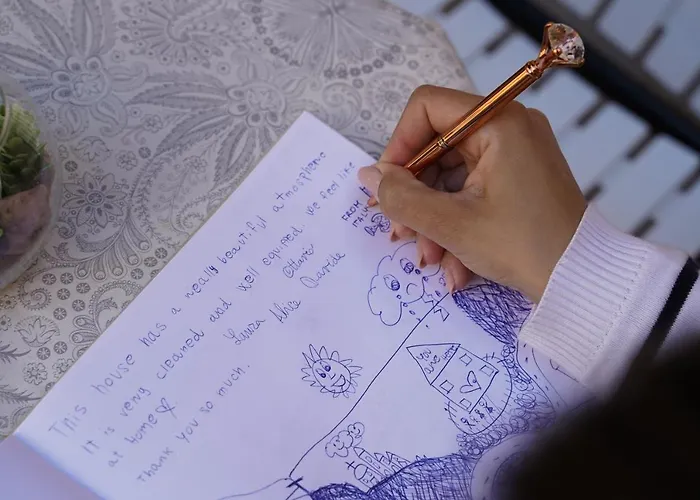 This house has a really beautiful atmosphere
It is very cleaned and well equiped we feel like
at home
Thank you so much.
Laura Alice Davide
FROM